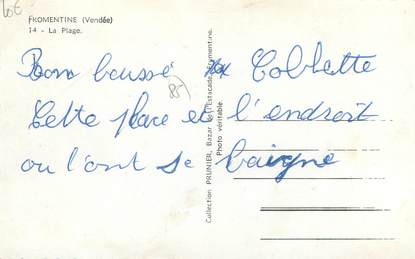 10€
FROMENTINE (Vendée)
14 - La Plage.
Bon beussé Colbette
(85)
Cette place et l'endroit
ou l'ont se baigne
Collection PRUNIER, Bazar de l'Estacade, Fromentine.
Photo véritable